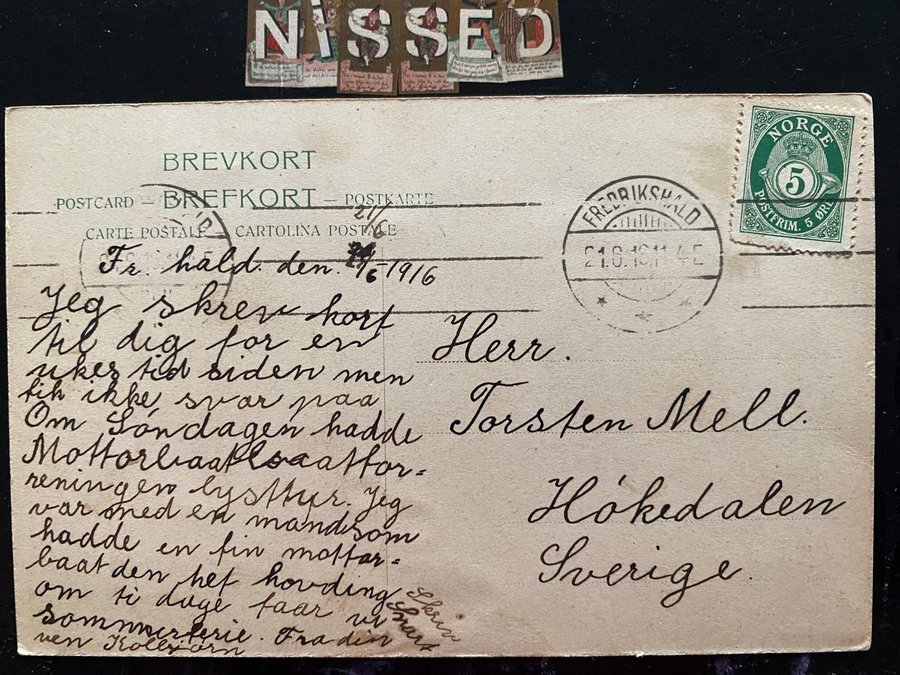 NISSED
BREVKORT
POSTCARD — BREFKORT — POSTKARTE
CARTE POSTALE — CARTOLINA POSTALE
NORGE
5
POSTFRIM. 5 ØRE
FREDRIKSHALD
21.6.16.11-4E
21/6
Fr. hald. den. 21/6 - 1916
Jeg skrev kort
til dig for en
ukes tid siden men
fik ikke svar paa
Om Søndagen hadde
Mottorbaat
reningen lysttur. Jeg
var med en mand som
hadde en fin mottor=
baat den het hovding
om ti dage faar vi
sommerferie. Fra din
ven Kolbjørn
Skriv
Snart
Herr.
Torsten Mell.
Høkedalen
Sverige.